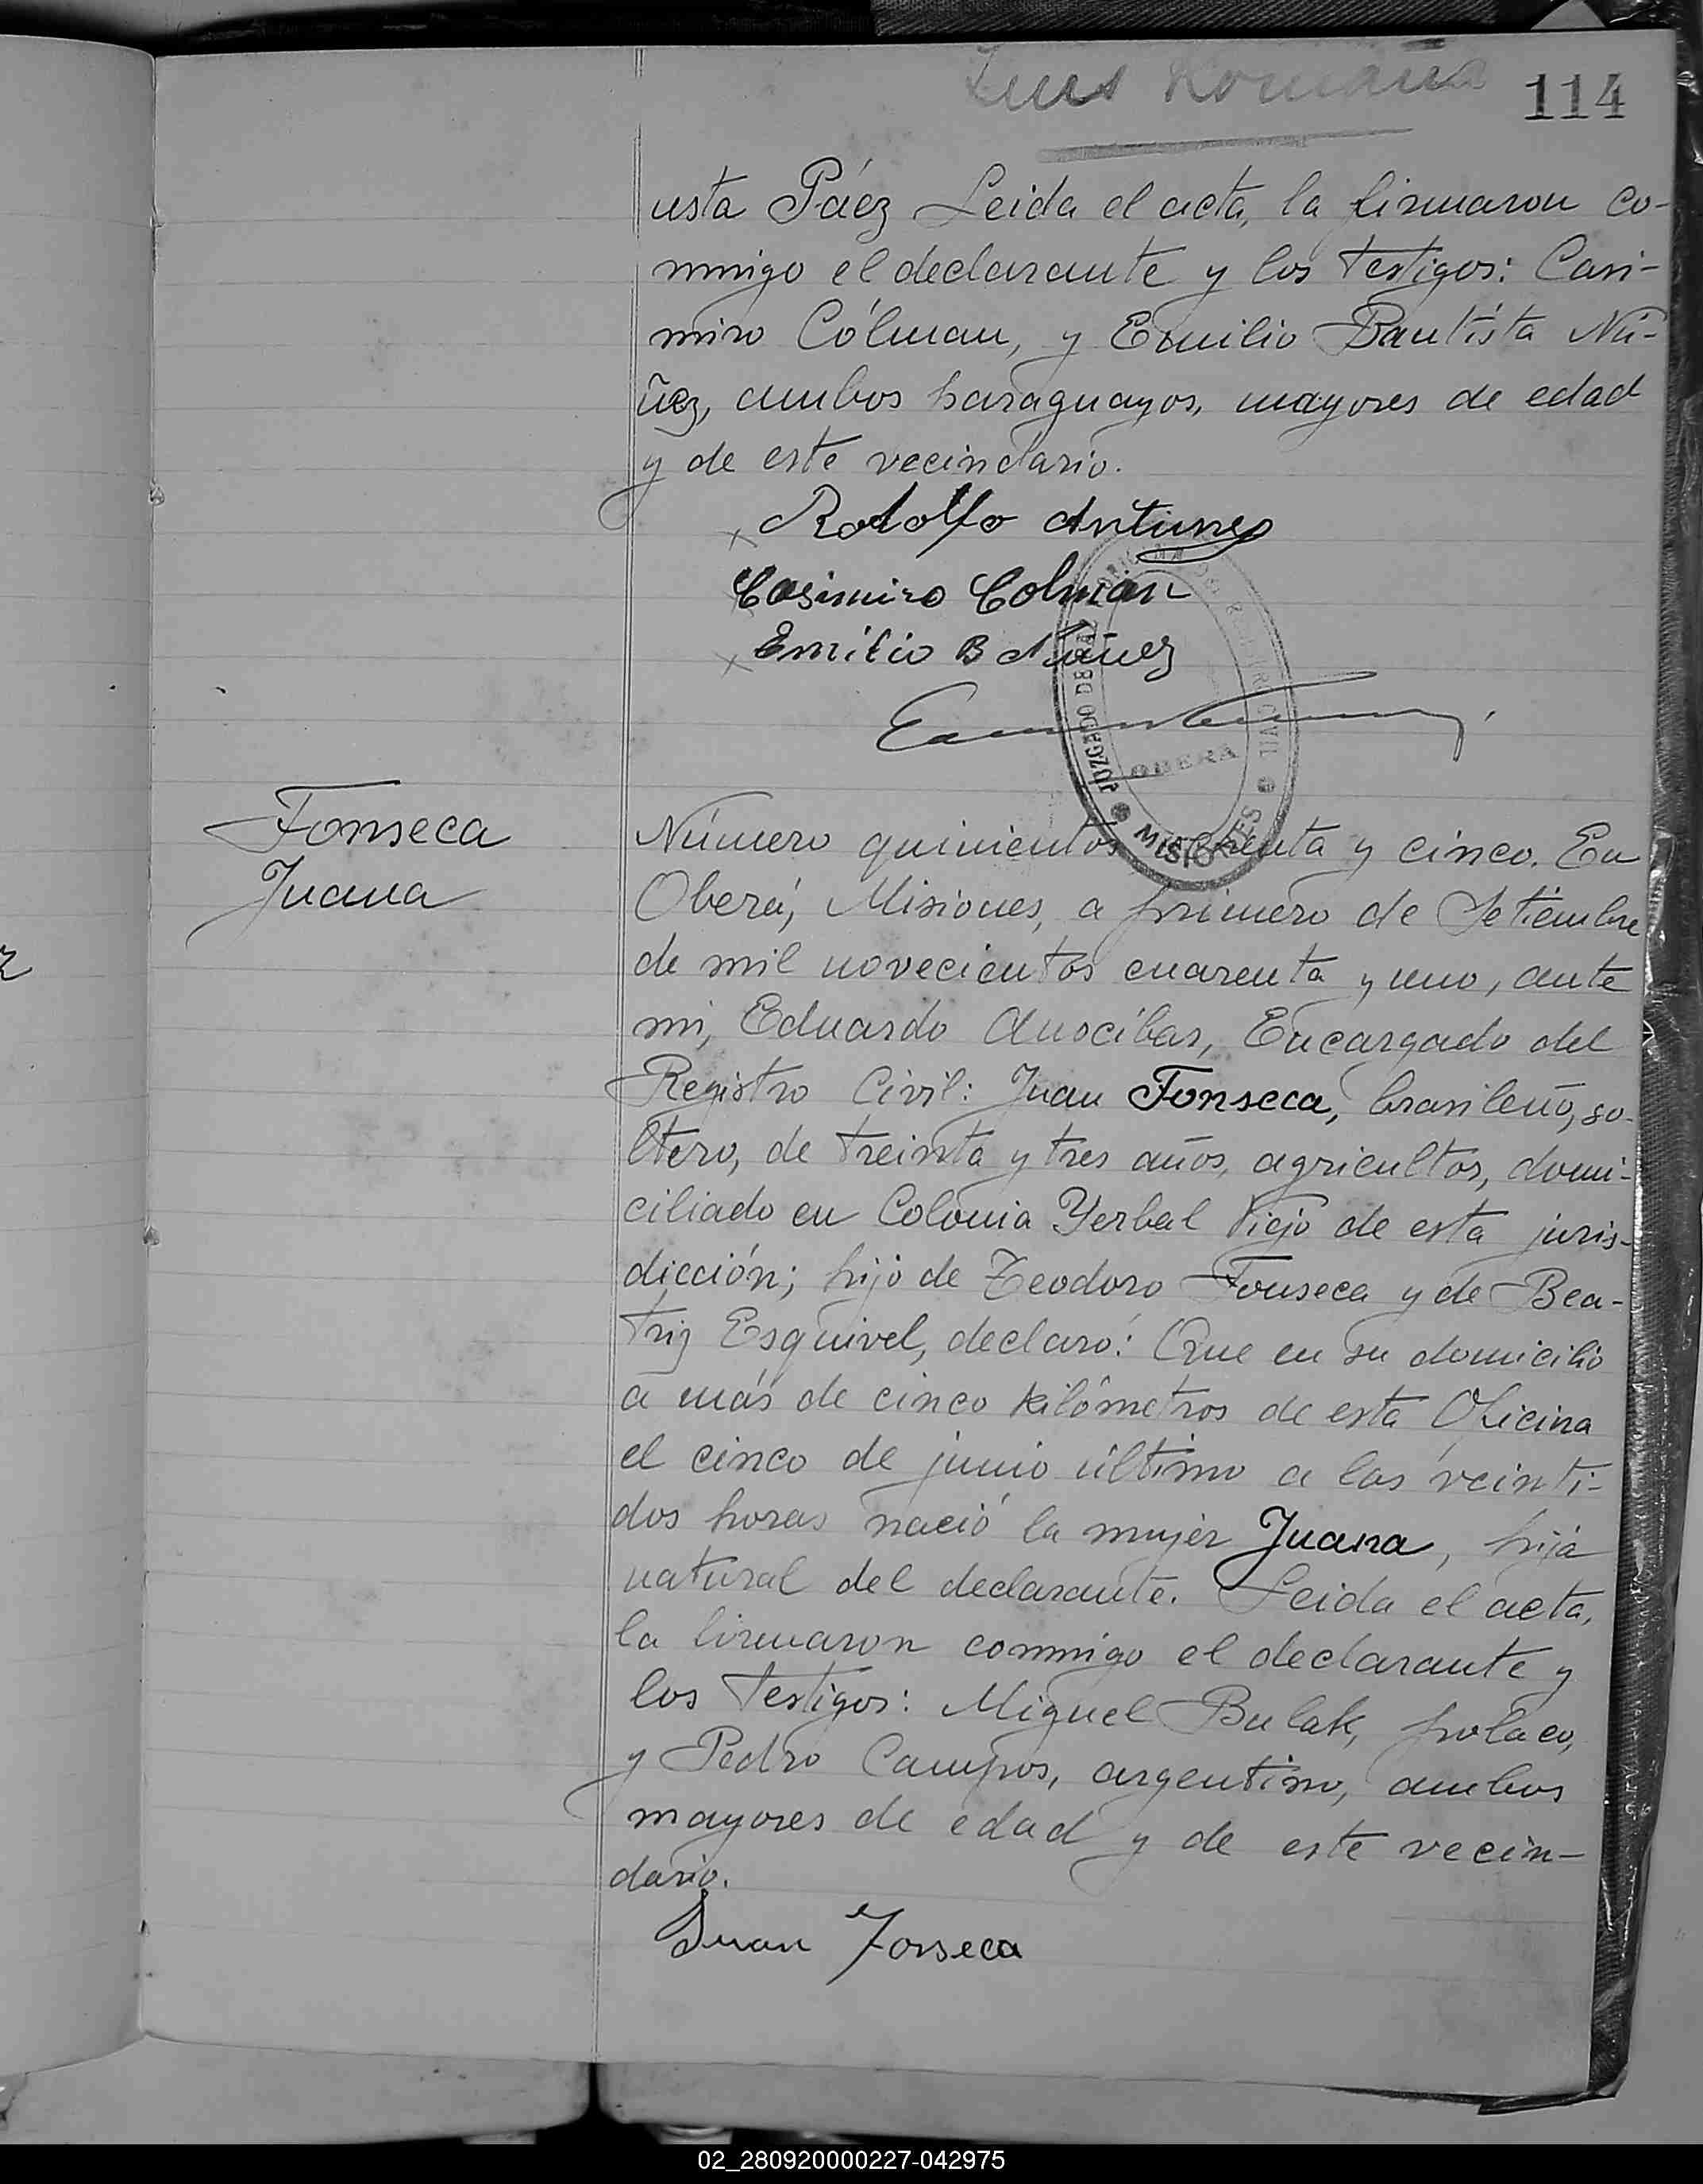 Luis Romana
114
usta Páez Leida el acta, la firmaron co-
nmigo el declarante y los testigos: Casi-
miro Cólman, y Emilio Bautista Nú-
ñez, ambos paraguayos, mayores de edad
y de este vecindario.
Rodolfo Antunes
Casimiro Colmán
Emilio B Núñez
JUZGADO DE PAZ
REGISTRO CIVIL
OBERÁ
MISIONES
Fonseca
Juana
Número quinientos y cinco. En
Oberá, Misiones, a primero de Setiembre
de mil novecientos cuarenta y uno, ante
mi, Eduardo Encargado del
Registro Civil: Juan Fonseca, brasileño, so-
ltero, de treinta y tres años, agricultor, domi-
ciliado en Colonia Yerbal Viejo de esta juris-
dicción; hijo de Teodoro Fonseca y de Bea-
triz Esquivel, declaró: Que en su domicilio
a más de cinco kilómetros de esta Oficina
el cinco de junio último a las veinti-
dos horas nació la mujer Juana, hija
natural del declarante. Leida el acta,
la firmaron conmigo el declarante y
los testigos: Miguel Bulak, polaco,
y Pedro Campos, argentino, ambos
mayores de edad y de este vecin-
dario.
Juan Fonseca
02_280920000227-042975